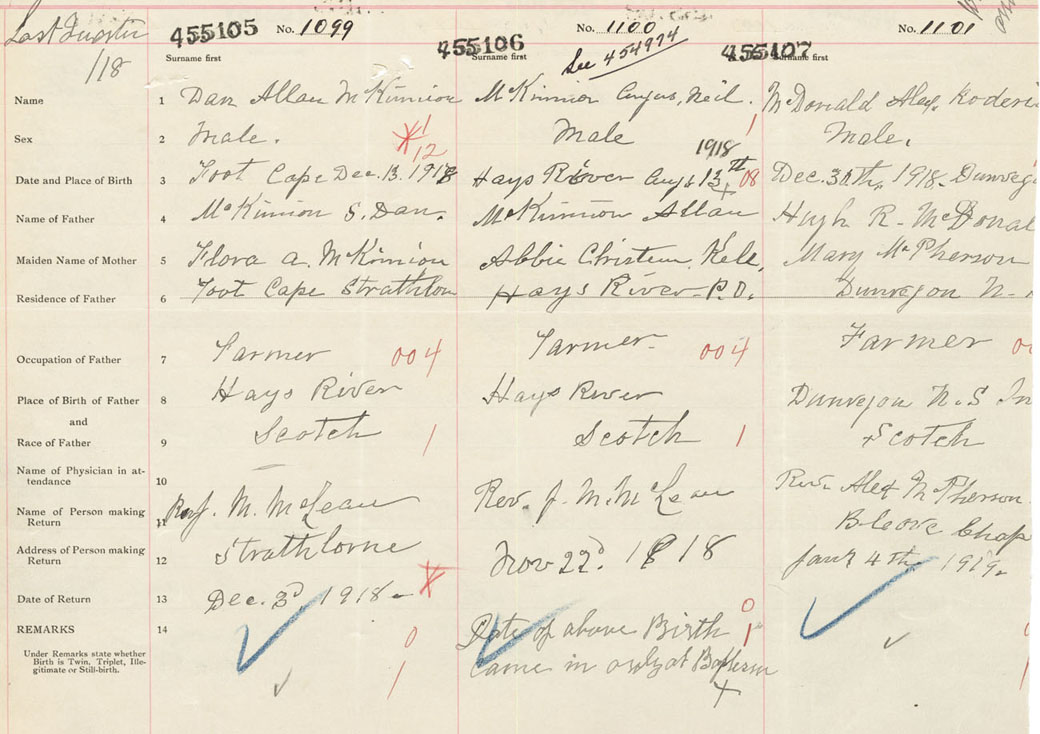 Last Quarter
/18
455105 No. 1099
Surname first
455106 No. 1100
Surname first
See 454974
455107 No. 1101
Surname first
Name 1 Dan Allan McKinnion McKinnion Angus, Neil. McDonald Alex. Roderi
Sex 2 Male. Male Male.
1918
Date and Place of Birth 3 Foot Cape Dec. 13. 1918 Hays River Aug 13th 08 Dec. 30th, 1918. Dunveg
Name of Father 4 McKinnion S. Dan. McKinnion Allan Hugh R. McDonal
Maiden Name of Mother 5 Flora A. McKinnion Abbie Christem Kell, Mary McPherson
Residence of Father 6 Foot Cape Strathlon Hays River P.O. Dunvegon N.
Occupation of Father 7 Farmer 004 Farmer 004 Farmer
Place of Birth of Father 8 Hays River Hays River Dunvegon N.S In
and
Race of Father 9 Scotch 1 Scotch 1 Scotch
Name of Physician in at-
tendance 10
Name of Person making
Return 11 Rev J. M. McLean Rev. J. M. McLean Rev. Alex McPherson
Bleove Chap
Address of Person making
Return 12 Strathlorne Nov 22d. 1918 Jany 4th 1919.
Date of Return 13 Dec. 1918
REMARKS 14 Date of above Birth
Under Remarks state whether
Birth is Twin, Triplet, Ille-
gitimate or Still-birth.
came in only at Baptism